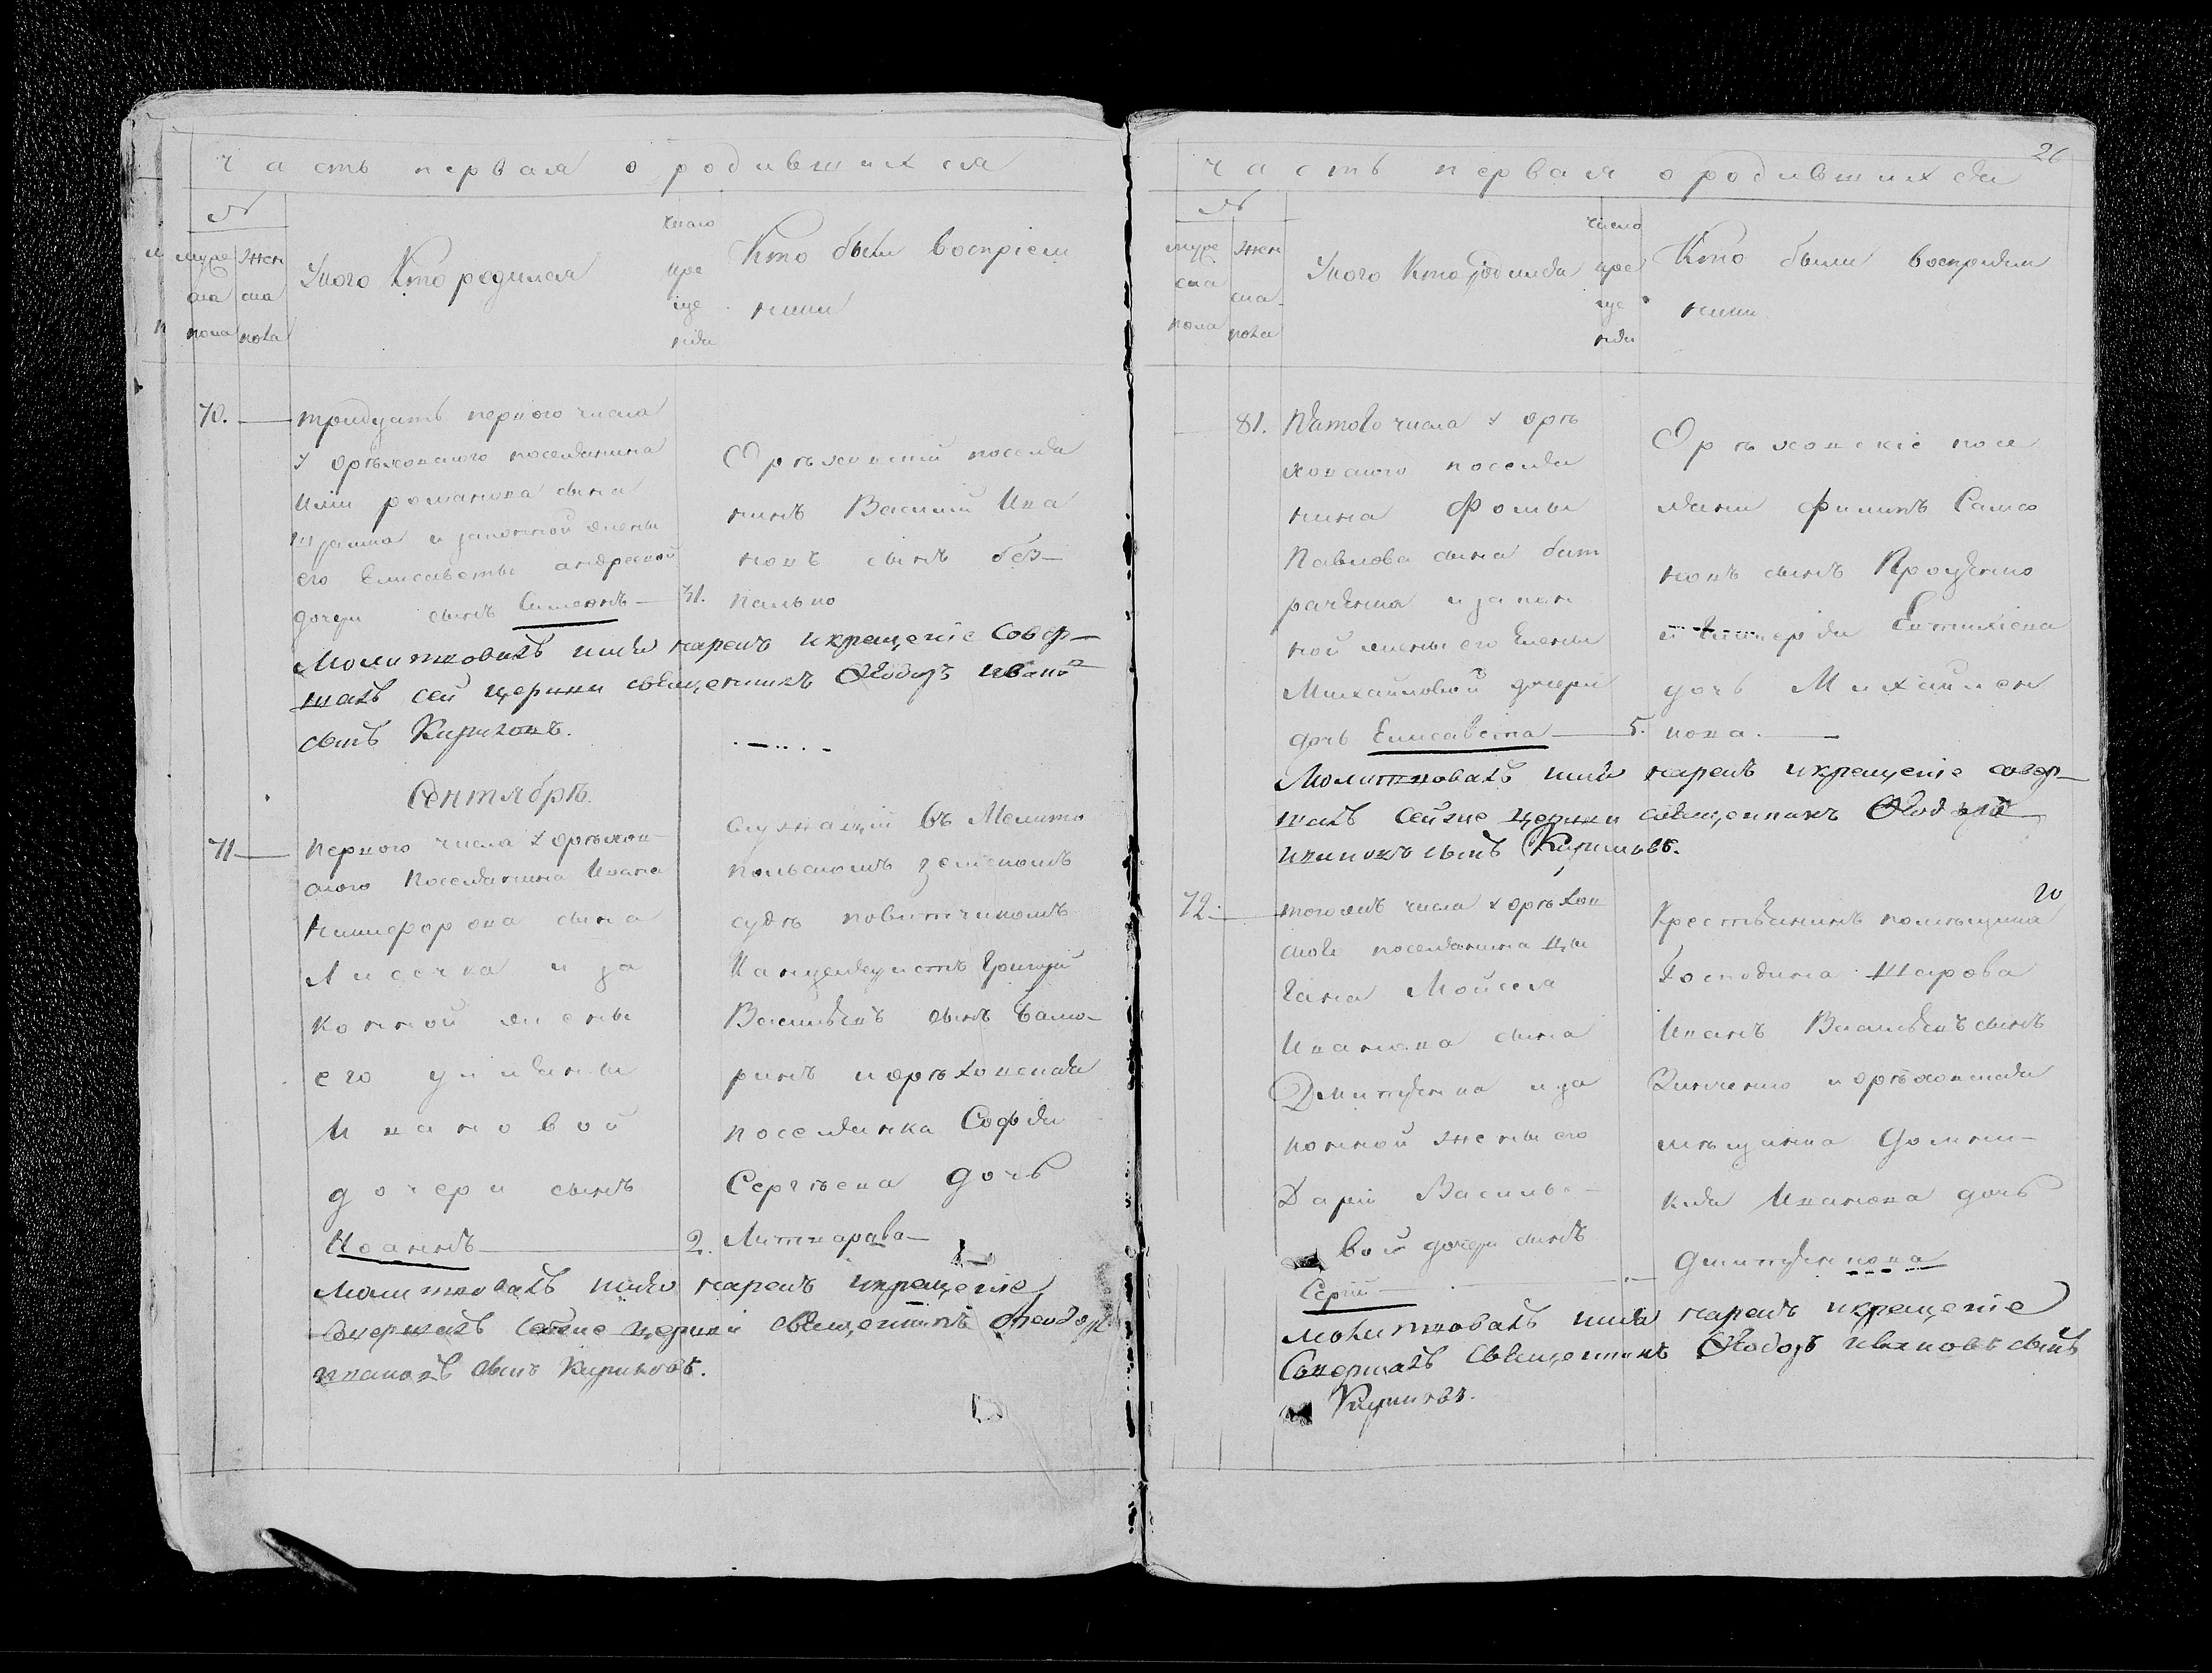 часть первая о родившихся
№
муже
ска
пола
жен
ска
пола
У кого Кто родился
число
кре
ще
нія
Кто были воспріем
ники
70.
тридцать первого числа
у орѣховского поселянина
Иліи романова сына
и законной жены
его Елисаветы андреевой
дочери сынъ Симеонъ
31.
Орѣховскій поселя
нинъ Василій Ива
новъ сынъ без-
пально
Молитвовалъ имя нарекъ и крещеніе совер-
шалъ сей церкви священникъ Ѳеодоръ Ивановъ
сынъ Кириловъ.
Сентябрь.
71
первого числа у орѣхов-
ского поселянина Ивана
Никифорова сына
Лисечка и за
конной жены
его улияны
Ивановой
дочери сынъ
Иоаннъ
2.
служащій въ Мелито
польскомъ земскомъ
судѣ повитчикомъ
Канцеляристъ Григорій
Васильевъ сынъ
ринъ и орѣховская
поселянка Софія
Сергѣева дочь
Литварова
Молитвовалъ имя нарекъ и крещеніе
совершалъ сейже церкви священникъ Ѳеодоръ
ивановъ сынъ Кириловъ.
26
часть первая о родившихся
№
муже
ска
пола
жен
ска
пола
У кого Кто родился
число
кре
ще
нія
Кто были воспріем
ники
81.
пятого числа у орѣ
ховского поселя
нина Фомы
Павлова сына бат
раченка и закон
ной жены его Елены
Михайловой дочери
дочь Елисавета
5.
Орѣховскіе посе
ляни филипъ Самсо
новъ сынъ
и Евтихіева
дочь Михайлен
кова.
Молитвовалъ имя нарекъ и крещеніе совер-
шалъ сейже церкви священникъ Ѳеодоръ
ивановъ сынъ Кириловъ.
72.
тогожъ числа у орѣхов
ского поселянина цы
гана Мойсея
Иванова сына
Дмитренка и за
конной жены его
Даріи Василье-
вой дочери сынъ
Сергій
Крестьянинъ помѣщика
го
Господина Шарова
Иванъ Васильевъ сынъ
Зинченко и орѣховская
мѣщанка Домни-
кія Иванова дочь
Дмитренкова
Молитвовалъ имя нарекъ и крещеніе
совершалъ священникъ Ѳеодоръ ивановъ сынъ
Кириловъ.